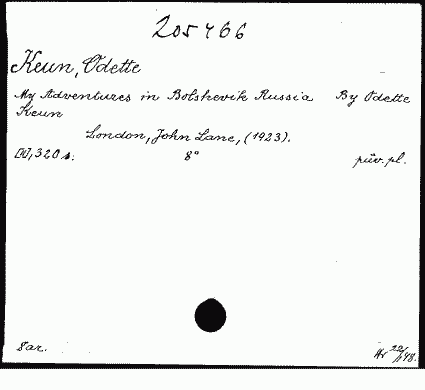 205466
Keun, Odette
My Adventures in Bolshevik Russia By Odette
Keun
London, John Lane, (1923).
320 s. 8° püv. pl.